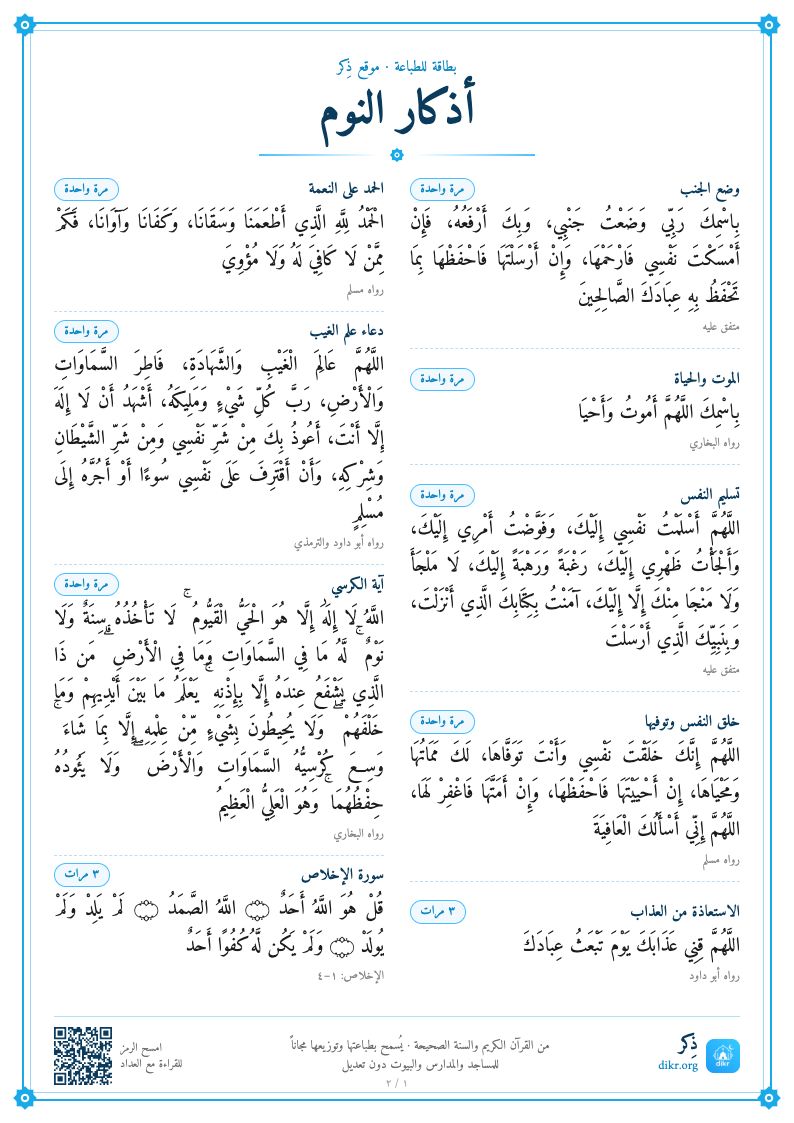 بطاقة للطباعة · موقع ذِكر
أذكار النوم
وضع الجنب
مرة واحدة
بِاسْمِكَ رَبِّي وَضَعْتُ جَنْبِي، وَبِكَ أَرْفَعُهُ، فَإِنْ
أَمْسَكْتَ نَفْسِي فَارْحَمْهَا، وَإِنْ أَرْسَلْتَهَا فَاحْفَظْهَا بِمَا
تَحْفَظُ بِهِ عِبَادَكَ الصَّالِحِينَ
متفق عليه
الموت والحياة
مرة واحدة
بِاسْمِكَ اللَّهُمَّ أَمُوتُ وَأَحْيَا
رواه البخاري
تسليم النفس
مرة واحدة
اللَّهُمَّ أَسْلَمْتُ نَفْسِي إِلَيْكَ، وَفَوَّضْتُ أَمْرِي إِلَيْكَ،
وَأَلْجَأْتُ ظَهْرِي إِلَيْكَ، رَغْبَةً وَرَهْبَةً إِلَيْكَ، لَا مَلْجَأَ
وَلَا مَنْجَا مِنْكَ إِلَّا إِلَيْكَ، آمَنْتُ بِكِتَابِكَ الَّذِي أَنْزَلْتَ،
وَبِنَبِيِّكَ الَّذِي أَرْسَلْتَ
متفق عليه
خلق النفس وتوفيها
مرة واحدة
اللَّهُمَّ إِنَّكَ خَلَقْتَ نَفْسِي وَأَنْتَ تَوَفَّاهَا، لَكَ مَمَاتُهَا
وَمَحْيَاهَا، إِنْ أَحْيَيْتَهَا فَاحْفَظْهَا، وَإِنْ أَمَتَّهَا فَاغْفِرْ لَهَا،
اللَّهُمَّ إِنِّي أَسْأَلُكَ الْعَافِيَةَ
رواه مسلم
الاستعاذة من العذاب
٣ مرات
اللَّهُمَّ قِنِي عَذَابَكَ يَوْمَ تَبْعَثُ عِبَادَكَ
رواه أبو داود
الحمد على النعمة
مرة واحدة
الْحَمْدُ لِلَّهِ الَّذِي أَطْعَمَنَا وَسَقَانَا، وَكَفَانَا وَآوَانَا، فَكَمْ
مِمَّنْ لَا كَافِيَ لَهُ وَلَا مُؤْوِيَ
رواه مسلم
دعاء علم الغيب
مرة واحدة
اللَّهُمَّ عَالِمَ الْغَيْبِ وَالشَّهَادَةِ، فَاطِرَ السَّمَاوَاتِ
وَالْأَرْضِ، رَبَّ كُلِّ شَيْءٍ وَمَلِيكَهُ، أَشْهَدُ أَنْ لَا إِلَهَ
إِلَّا أَنْتَ، أَعُوذُ بِكَ مِنْ شَرِّ نَفْسِي وَمِنْ شَرِّ الشَّيْطَانِ
وَشِرْكِهِ، وَأَنْ أَقْتَرِفَ عَلَى نَفْسِي سُوءًا أَوْ أَجُرَّهُ إِلَى
مُسْلِمٍ
رواه أبو داود والترمذي
آية الكرسي
مرة واحدة
اللَّهُ لَا إِلَٰهَ إِلَّا هُوَ الْحَيُّ الْقَيُّومُ ۚ لَا تَأْخُذُهُ سِنَةٌ وَلَا
نَوْمٌ ۚ لَّهُ مَا فِي السَّمَاوَاتِ وَمَا فِي الْأَرْضِ ۗ مَن ذَا
الَّذِي يَشْفَعُ عِندَهُ إِلَّا بِإِذْنِهِ ۚ يَعْلَمُ مَا بَيْنَ أَيْدِيهِمْ وَمَا
خَلْفَهُمْ ۖ وَلَا يُحِيطُونَ بِشَيْءٍ مِّنْ عِلْمِهِ إِلَّا بِمَا شَاءَ ۚ
وَسِعَ كُرْسِيُّهُ السَّمَاوَاتِ وَالْأَرْضَ ۖ وَلَا يَئُودُهُ
حِفْظُهُمَا ۚ وَهُوَ الْعَلِيُّ الْعَظِيمُ
رواه البخاري
سورة الإخلاص
٣ مرات
قُلْ هُوَ اللَّهُ أَحَدٌ ۝ اللَّهُ الصَّمَدُ ۝ لَمْ يَلِدْ وَلَمْ
يُولَدْ ۝ وَلَمْ يَكُن لَّهُ كُفُوًا أَحَدٌ
الإخلاص: ١-٤
ذِكر
dikr.org
dikr
من القرآن الكريم والسنة الصحيحة · يُسمح بطباعتها وتوزيعها مجاناً
للمساجد والمدارس والبيوت دون تعديل
١ / ٢
امسح الرمز
للقراءة مع العداد